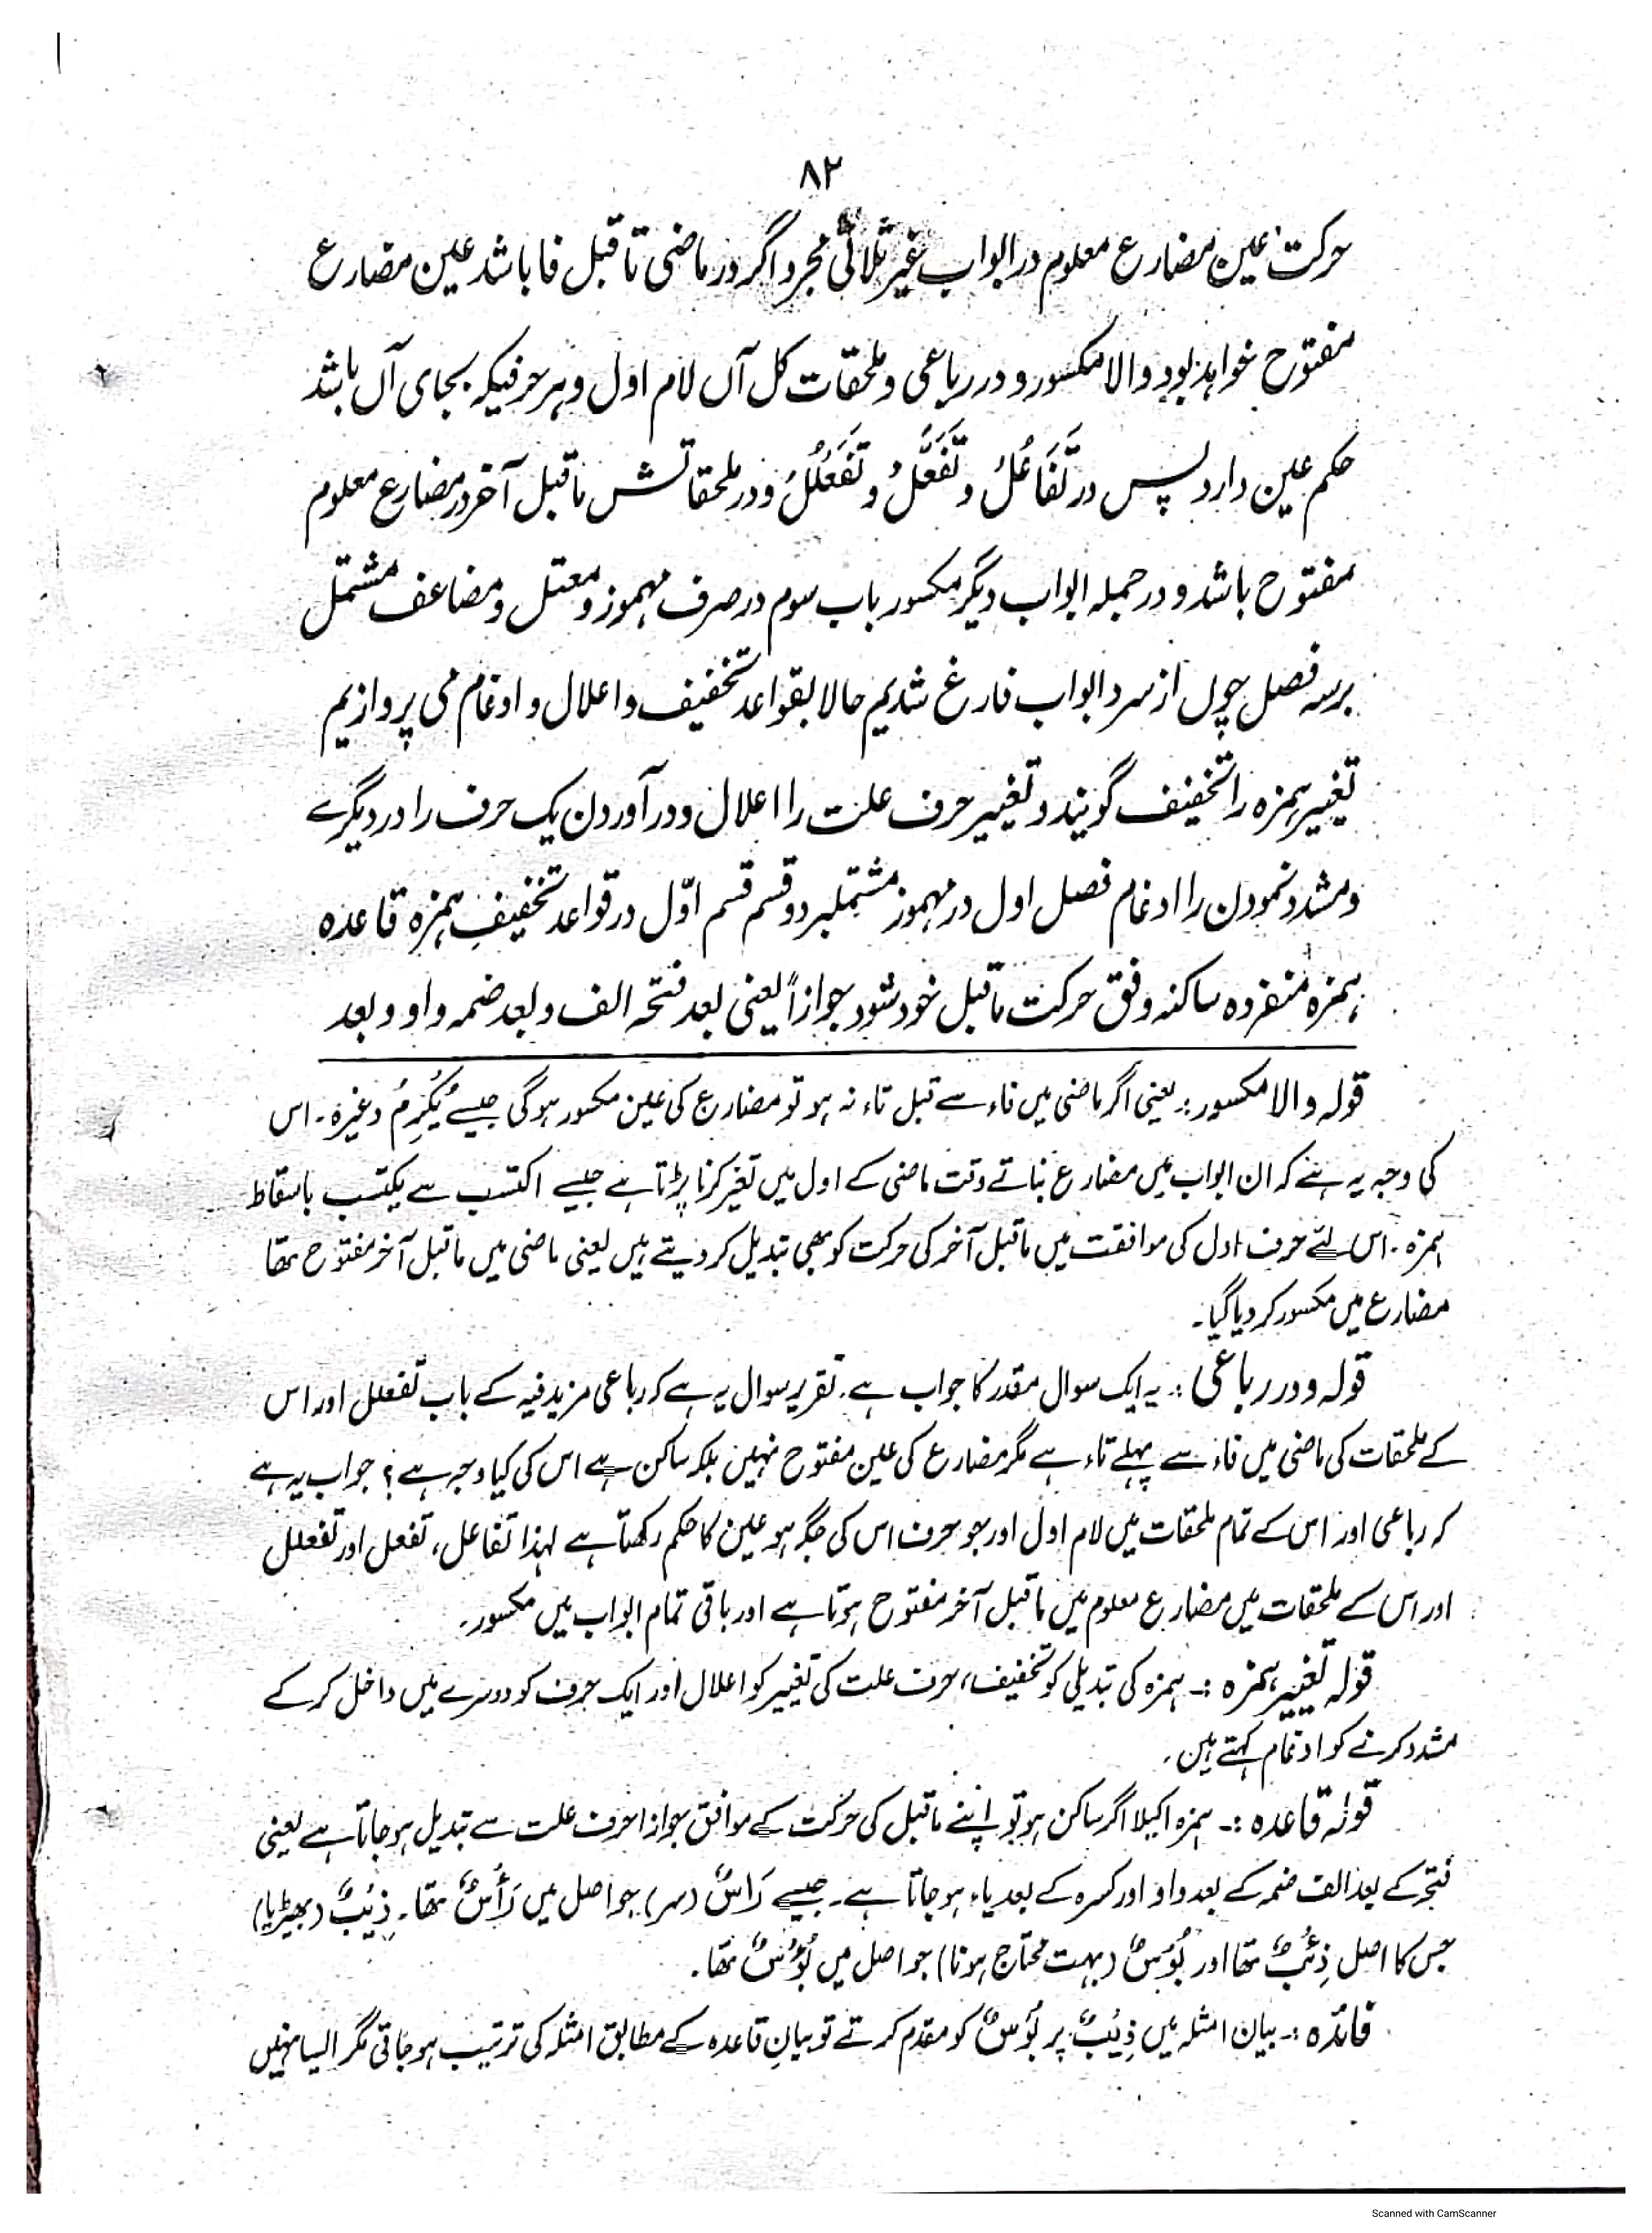 ۸۲
حرکت عین مضارع معلوم در ابواب غیر ثلاثی مجرد اگر در ماضی تا قبل فا باشد عین مضارع
مفتوح خواہد بود والا مکسور و در رباعی و ملحقات کل آں لام اول و ہر حرفیکہ بجای آں باشد
حکم عین دارد پس در تَفَاعُلُ و تَفَعُّلُ و تَفَعْلُلُ و در ملحقاتش ماقبل آخر در مضارع معلوم
مفتوح باشد و در جملہ ابواب دیگر مکسور باب سوم در صرف مہموز و معتل و مضاعف مشتمل
برسہ فصل چوں از سرد ابواب فارغ شدیم حالا بقواعد تخفیف و اعلال و ادغام می پردازیم
تغییر ہمزہ را تخفیف گویند و تغییر حرف علت را اعلال و در آوردن یک حرف را در دیگرے
و مشدد نمودن را ادغام فصل اول در مہموز مشتملبر دو قسم قسم اوّل در قواعد تخفیفِ ہمزہ قاعدہ
ہمزہ منفردہ ساکنہ وفق حرکت ماقبل خود شود جوازاً یعنی بعد فتحہ الف و بعد ضمہ واو و بعد
قولہ والا مکسور :۔ یعنی اگر ماضی میں فاء سے قبل تاء نہ ہو تو مضارع کی عین مکسور ہوگی جیسے یُکْرِمُ وغیرہ۔ اس
کی وجہ یہ ہے کہ ان ابواب میں مضارع بناتے وقت ماضی کے اول میں تغیر کرنا پڑتا ہے جیسے اکتسب سے یکتسب باسقاط
ہمزہ۔ اس لئے حرف اول کی موافقت میں ماقبل آخر کی حرکت کو بھی تبدیل کر دیتے ہیں یعنی ماضی میں ماقبل آخر مفتوح تھا
مضارع میں مکسور کر دیا گیا۔
قولہ و در رباعی :۔ یہ ایک سوال مقدر کا جواب ہے۔ تقریر سوال یہ ہے کہ رباعی مزید فیہ کے باب تفعلل اور اس
کے ملحقات کی ماضی میں فاء سے پہلے تاء ہے مگر مضارع کی عین مفتوح نہیں بلکہ ساکن ہے اس کی کیا وجہ ہے؟ جواب یہ ہے
کہ رباعی اور اس کے تمام ملحقات میں لام اول اور جو حرف اس کی جگہ ہو عین کا حکم رکھتا ہے لہذا تفاعل، تفعل اور تفعلل
اور اس کے ملحقات میں مضارع معلوم میں ماقبل آخر مفتوح ہوتا ہے اور باقی تمام ابواب میں مکسور۔
قولہ تغییر ہمزہ :۔ ہمزہ کی تبدیلی کو تخفیف، حرف علت کی تغییر کو اعلال اور ایک حرف کو دوسرے میں داخل کر کے
مشدد کرنے کو ادغام کہتے ہیں۔
قولہ قاعدہ :۔ ہمزہ اکیلا اگر ساکن ہو تو اپنے ماقبل کی حرکت کے موافق جوازا حرف علت سے تبدیل ہو جاتا ہے یعنی
فتحہ کے بعد الف ضمہ کے بعد واو اور کسرہ کے بعد یاء ہو جاتا ہے۔ جیسے رَاسٌ (سر) جو اصل میں رَأْسٌ تھا۔ ذِیْبٌ (بھیڑیا)
جس کا اصل ذِئْبٌ تھا اور بُوْسٌ (بہت محتاج ہونا) جو اصل میں بُؤْسٌ تھا۔
فائدہ :۔ بیان امثلہ میں ذِیْبٌ پر بُوْسٌ کو مقدم کرتے تو بیانِ قاعدہ کے مطابق امثلہ کی ترتیب ہو جاتی مگر ایسا نہیں
Scanned with CamScanner